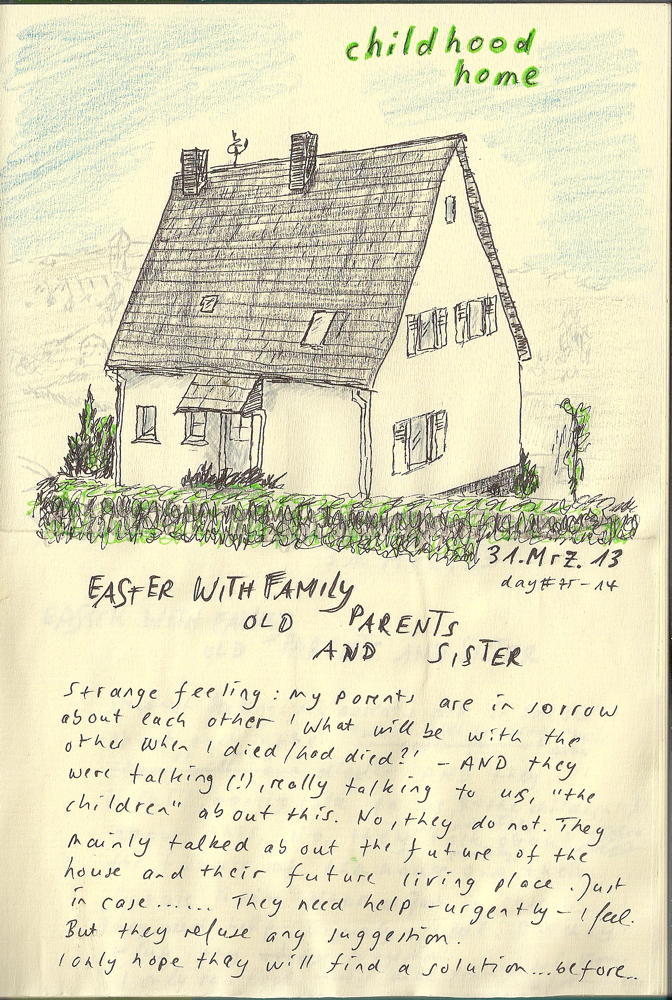 childhood
home
31.Mrz.13
day# 75-14
EASTER WITH FAMILY
OLD PARENTS
AND SISTER
Strange feeling: my parents are in sorrow
about each other 'What will be with the
other when I died/had died?' - AND they
were talking (!), really talking to us, "the
children" about this. No, they do not. They
mainly talked about the future of the
house and their future living place. Just
in case...... They need help -urgently- I feel.
But they refuse any suggestion.
I only hope they will find a solution...before..